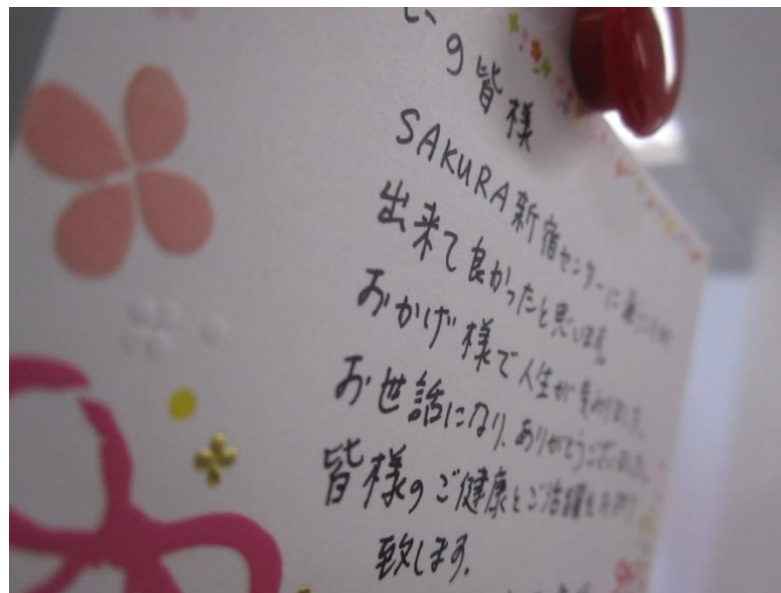 の皆様
SAKURA新宿センターに通うことが
出来て良かったと思います。
おかげ様で人生が変わりました。
お世話になり、ありがとうございました。
皆様のご健康とご活躍を
致します。